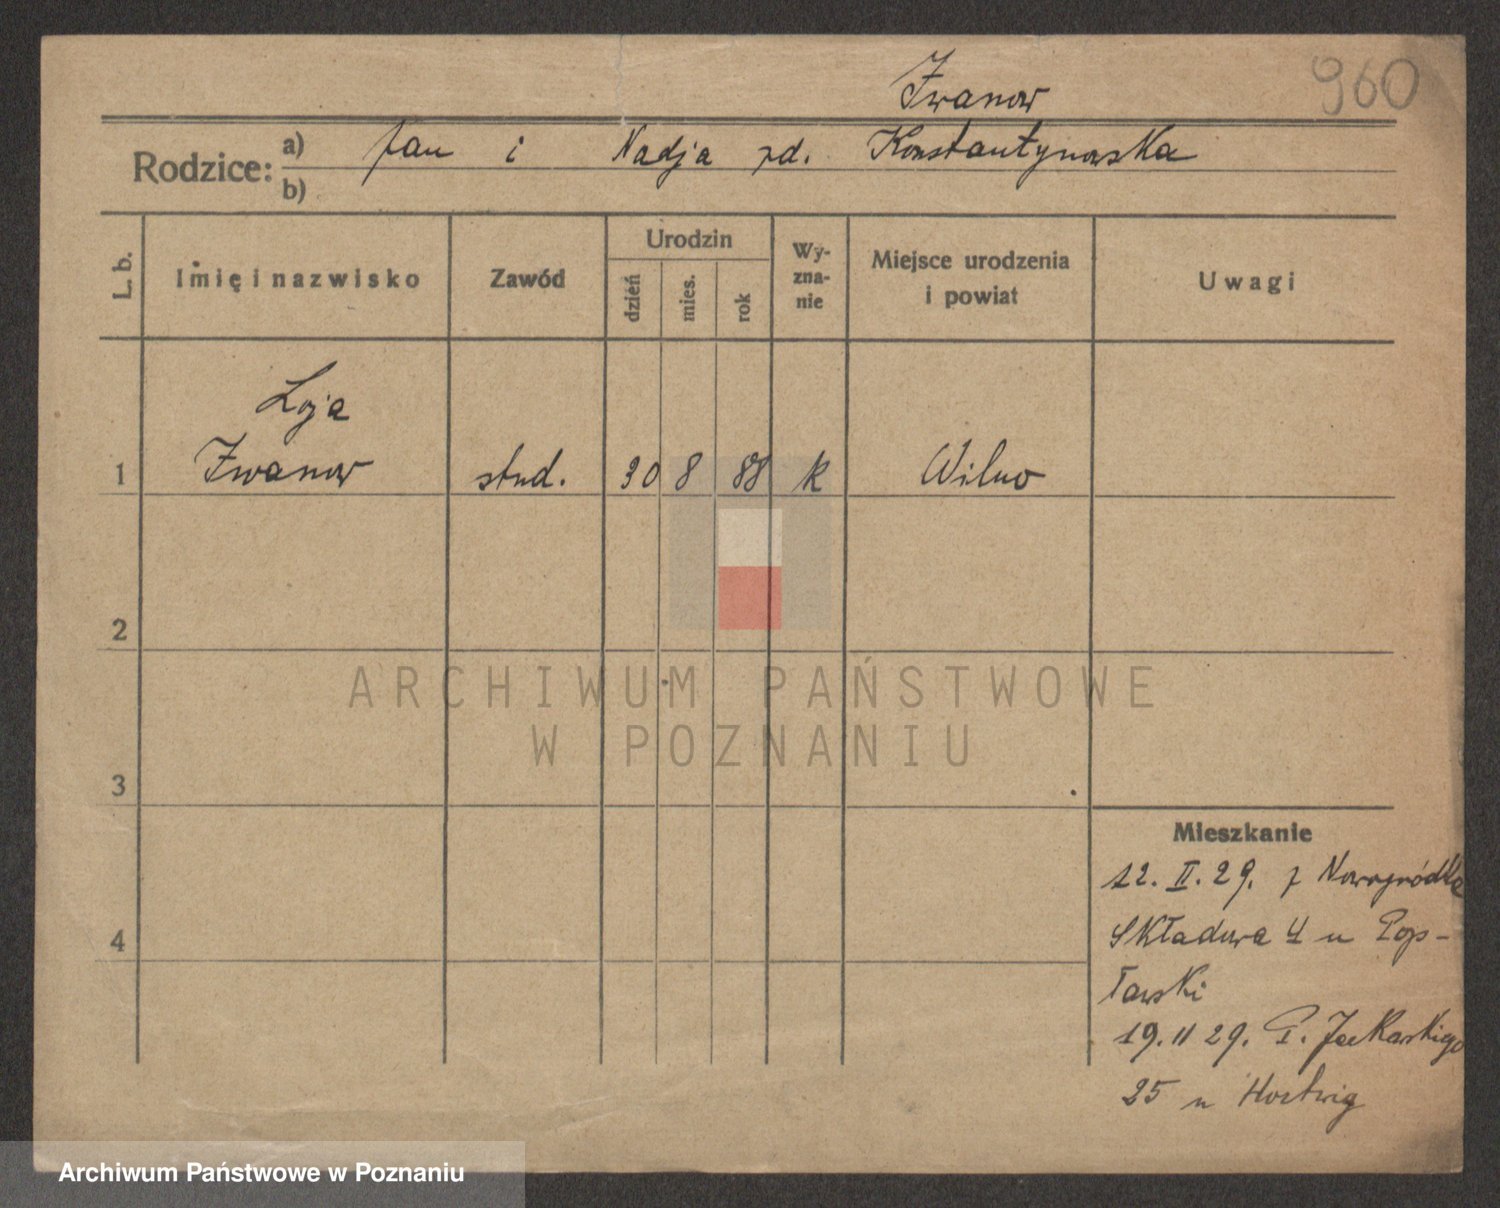 960
Iwanow
Rodzice: a) Jan i Nadja zd. Konstantynowska
b)
L. b. Imię i nazwisko Zawód Urodzin dzień mies. rok Wyznanie Miejsce urodzenia i powiat Uwagi
Zoja
1 Iwanow stud. 30 8 88 k Wilno
2
ARCHIWUM PAŃSTWOWE
W POZNANIU
3
Mieszkanie
12. II. 29. z Nowogródka
4 Składowa 4 u Pop-
ławski
19. II 29. P. Jackowskiego
25 u Hartwig
Archiwum Państwowe w Poznaniu